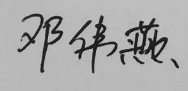 邓伟燕